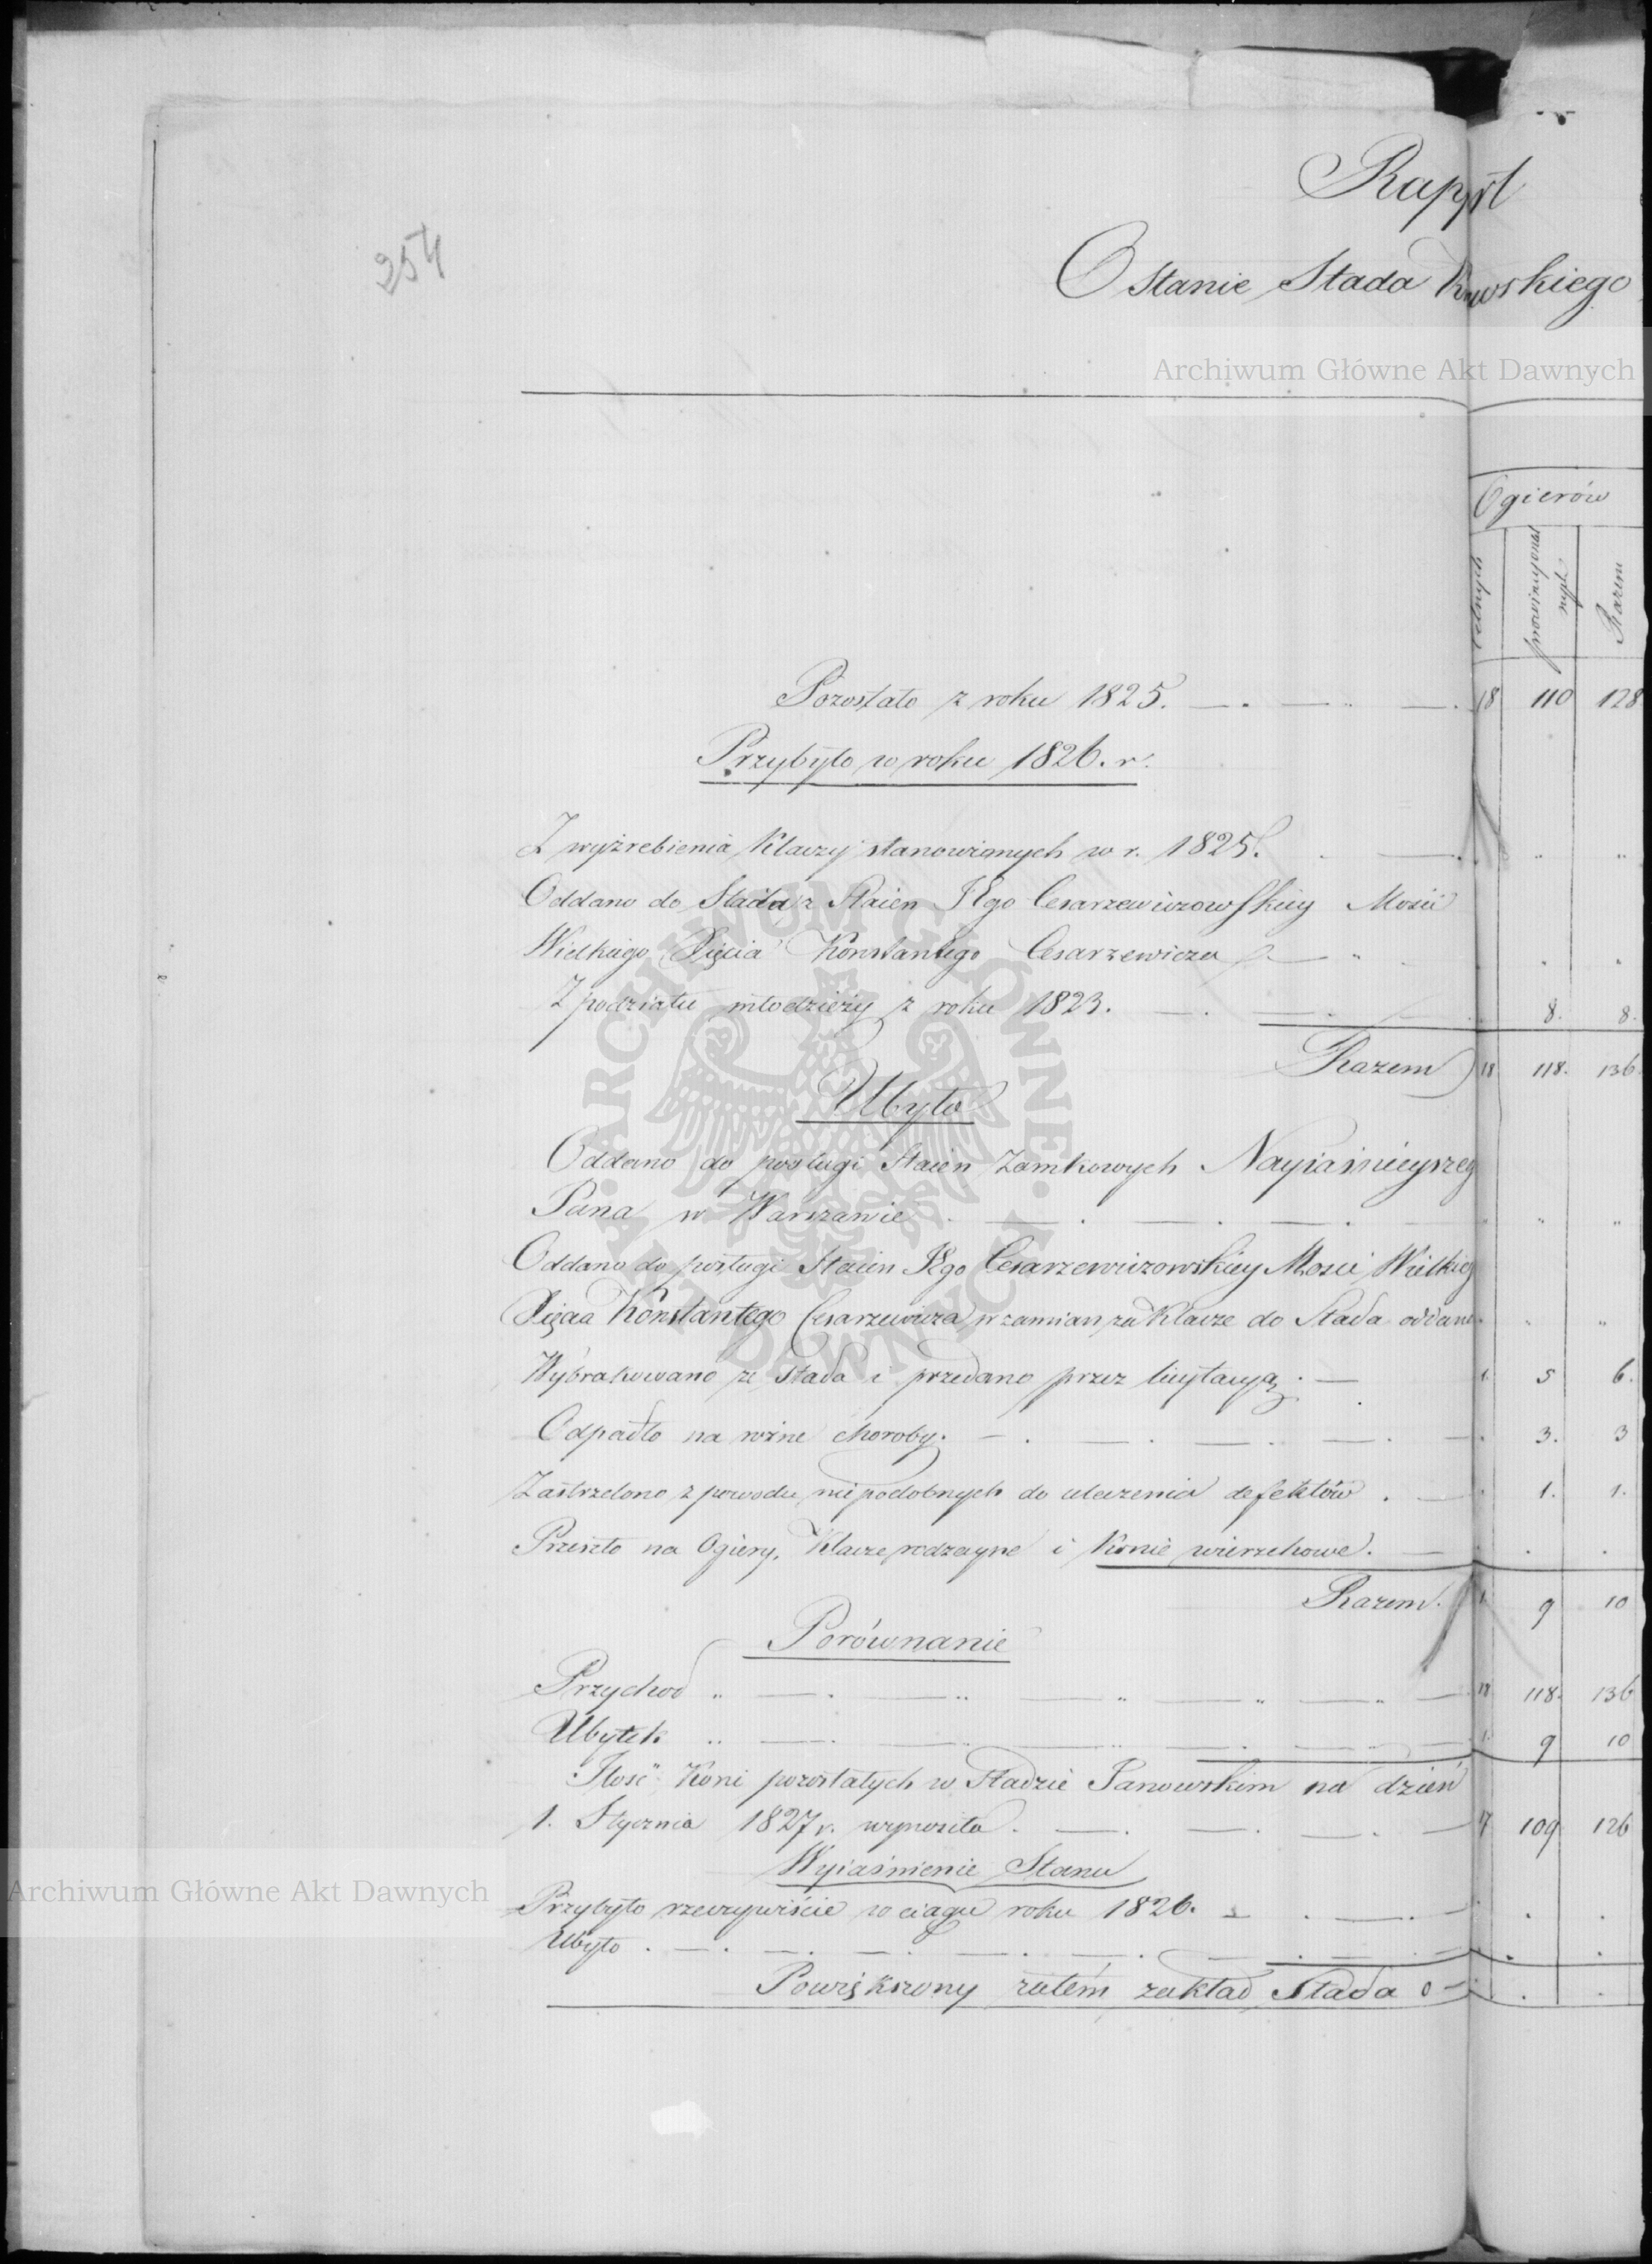 Raport
254
O Stanie Stada
Archiwum Główne Akt Dawnych
Ogierów
prowincyonalnych
Razem
Pozostało z roku 1825. 18 110 128
Przybyło w roku 1826. r.
Z wyźrebienia Klaczy stanowionych w r. 1825.
Oddano do Stada z Staien JEgo Cesarzewiczowskiey Mosci
Wielkiego Xięcia Konstantego Cesarzewicza
Z podziału młodzieży z roku 1823. 8. 8.
Razem 18 118. 136
Ubyło
Oddano do posługi Staien Zamkowych Nayiaśnieyszeg
Pana w Warszawie
Oddano do posługi Staien JEgo Cesarzewiczowskiey Mosci Wielkieg
Xięcia Konstantego Cesarzewicza w zamian za Klacze do Stada oddane
Wybrakowano ze Stada i przedano przez licytacyą. 1. 5 6.
Odpadło na rożne choroby. 3. 3
Zastrzelono z powodu niepodobnych do uleczenia defektów. 1. 1.
Przeszło na Ogiery, Klacze rodzayne i Konie wierzchowe.
Razem. 1. 9 10
Porównanie
Przychod 18 118. 136
Ubytek 1. 9 10
Ilosć Koni pozostałych w Stadzie Janowskim na dzień
1. Stycznia 1827 r. wynosiła. 17 109 126
Wyiaśnienie Stanu
Archiwum Główne Akt Dawnych
Przybyło rzeczywiście w ciągu roku 1826.
Ubyło
Powiększony zatém zakład Stada o
ARCHIWUM GŁÓWNE AKT DAWNYCH